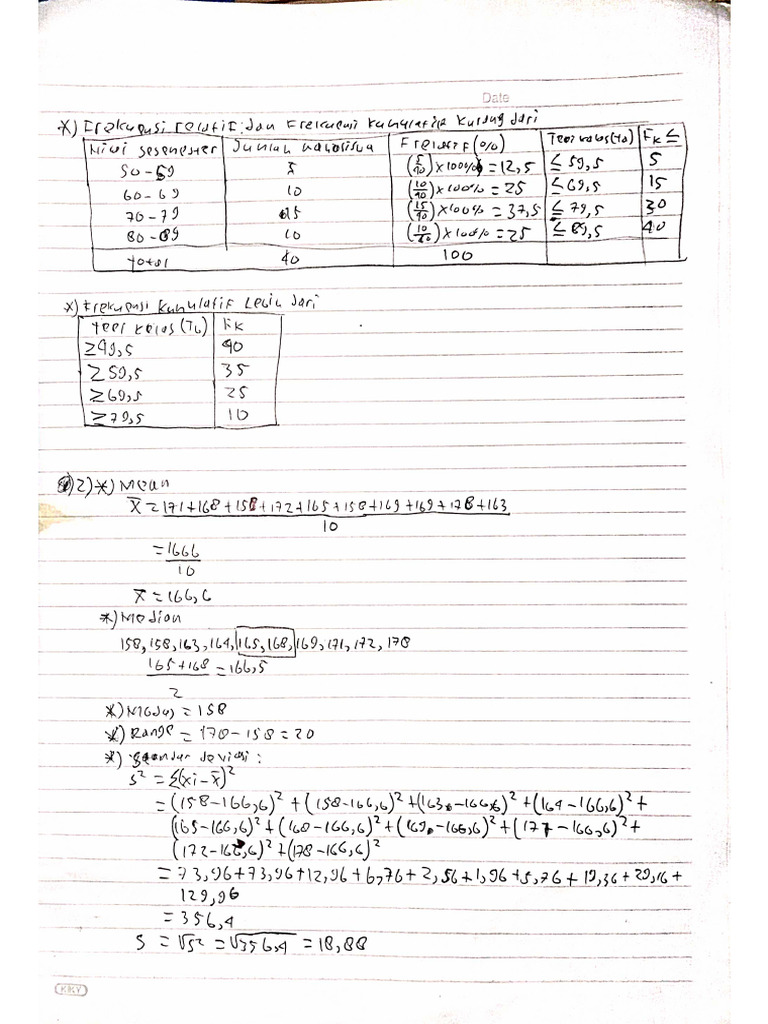 Date
*) Frekuensi relatif dan Frekuensi Kumulatif Kurang dari
Nilai Sesemester Jumlah Mahasiswa Frelatif (%) Tepi kelas (Tb) Fk ≤
50-59 5 (5/40)×100% = 12,5 ≤ 59,5 5
60-69 10 (10/40)×100% = 25 ≤ 69,5 15
70-79 15 (15/40)×100% = 37,5 ≤ 79,5 30
80-89 10 (10/40)×100% = 25 ≤ 89,5 40
Total 40 100
*) Frekuensi Kumulatif Lebih dari
Tepi kelas (Tb) Fk
≥ 49,5 40
≥ 59,5 35
≥ 69,5 25
≥ 79,5 10
2) *) Mean
x̄ = 171+168+158+172+165+158+169+169+178+163
10
= 1666
10
x̄ = 166,6
*) Median
158, 158, 163, 164, 165, 168, 169, 171, 172, 178
165+168 = 166,5
2
*) Modus = 158
*) Range = 178-158 = 20
*) Standar deviasi :
s² = Σ(xi - x̄)²
= (158-166,6)² + (158-166,6)² + (163-166,6)² + (164-166,6)² +
(165-166,6)² + (168-166,6)² + (169-166,6)² + (171-166,6)² +
(172-166,6)² + (178-166,6)²
= 73,96+73,96+12,96+6,76+2,56+1,96+5,76+19,36+29,16+
129,96
= 356,4
S = √s² = √356,4 = 18,88
KIKY